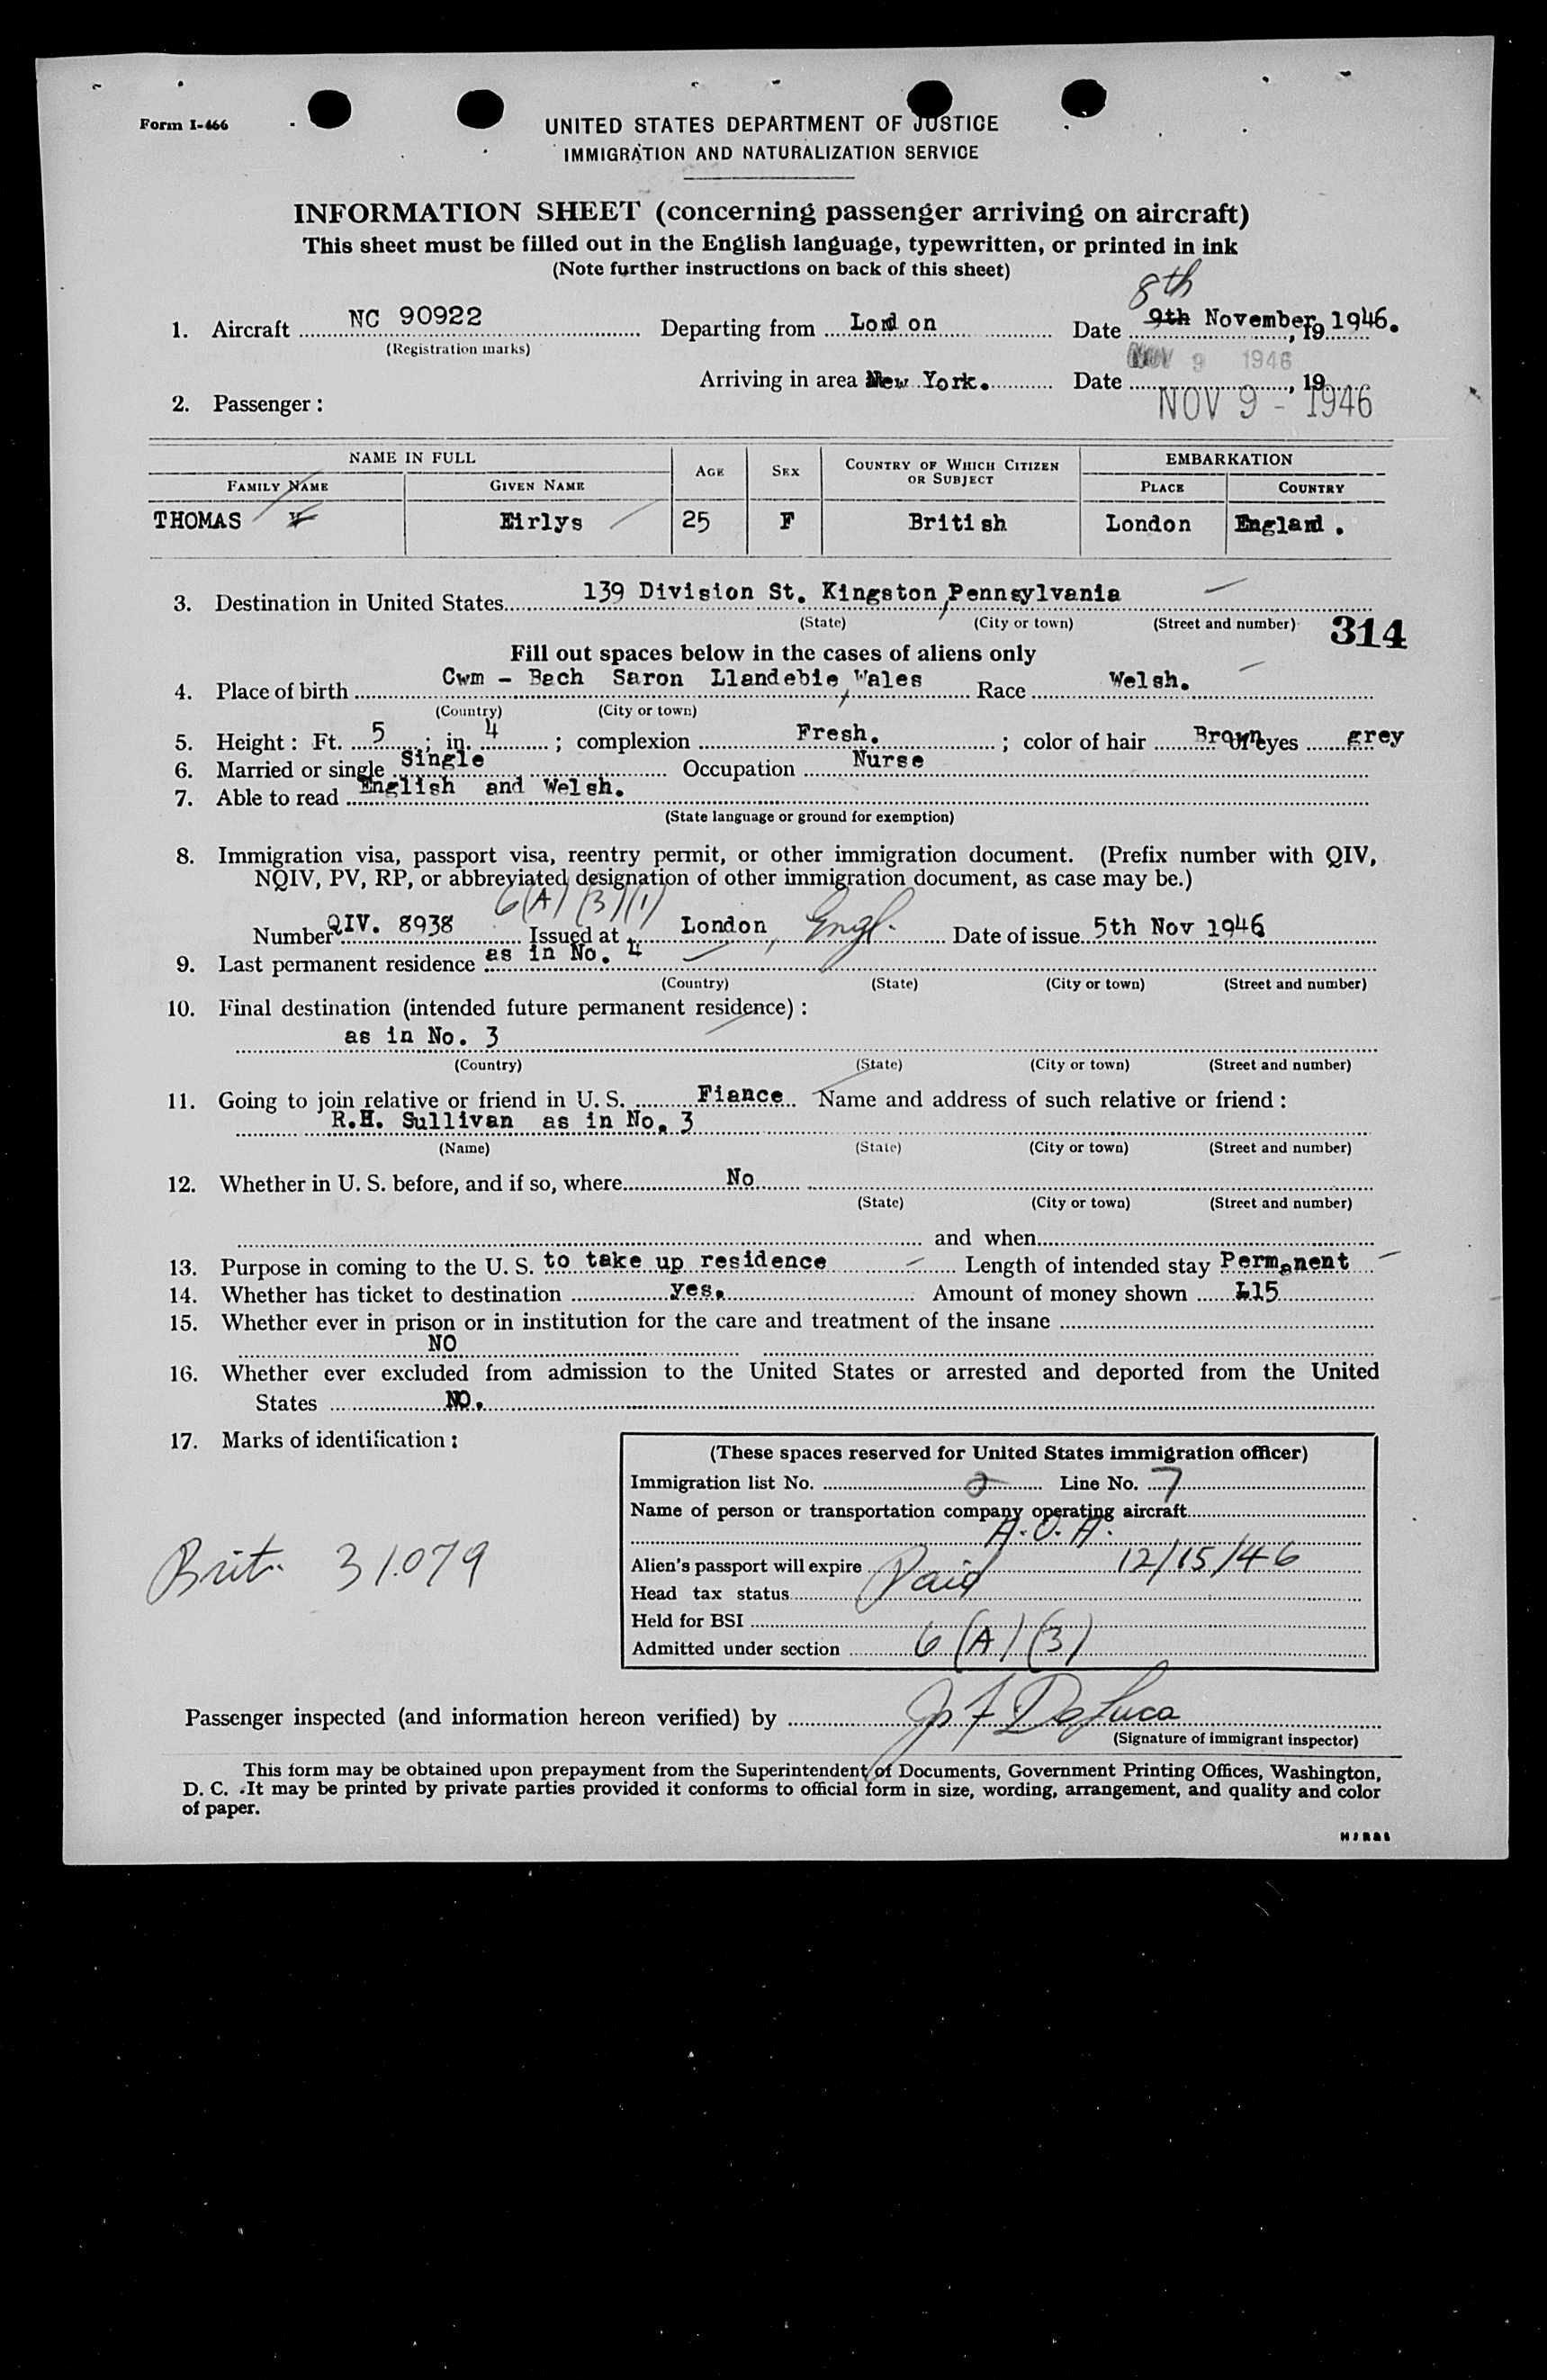 Form I-466
UNITED STATES DEPARTMENT OF JUSTICE
IMMIGRATION AND NATURALIZATION SERVICE
INFORMATION SHEET (concerning passenger arriving on aircraft)
This sheet must be filled out in the English language, typewritten, or printed in ink
(Note further instructions on back of this sheet)
8th
1. Aircraft NC 90922 Departing from London Date 9th November, 19 1946.
(Registration marks)
NOV 9 1946
Arriving in area New York. Date , 19
NOV 9 - 1946
2. Passenger:
NAME IN FULL AGE SEX COUNTRY OF WHICH CITIZEN OR SUBJECT EMBARKATION
FAMILY NAME GIVEN NAME PLACE COUNTRY
THOMAS Eirlys 25 F British London England.
3. Destination in United States 139 Division St. Kingston, Pennsylvania
(State) (City or town) (Street and number)
314
Fill out spaces below in the cases of aliens only
4. Place of birth Cwm - Bach Saron Llandebie, Wales Race Welsh.
(Country) (City or town)
5. Height: Ft. 5; in. 4; complexion Fresh.; color of hair Brown eyes grey
6. Married or single Single Occupation Nurse
7. Able to read English and Welsh.
(State language or ground for exemption)
8. Immigration visa, passport visa, reentry permit, or other immigration document. (Prefix number with QIV,
NQIV, PV, RP, or abbreviated designation of other immigration document, as case may be.)
6(A)(3)(1)
Number QIV. 8938 Issued at London, Engl. Date of issue 5th Nov 1946
9. Last permanent residence as in No. 4
(Country) (State) (City or town) (Street and number)
10. Final destination (intended future permanent residence):
as in No. 3
(Country) (State) (City or town) (Street and number)
11. Going to join relative or friend in U. S. Fiance Name and address of such relative or friend:
R.H. Sullivan as in No. 3
(Name) (State) (City or town) (Street and number)
12. Whether in U. S. before, and if so, where No
(State) (City or town) (Street and number)
and when
13. Purpose in coming to the U. S. to take up residence Length of intended stay Permanent
14. Whether has ticket to destination yes. Amount of money shown £15
15. Whether ever in prison or in institution for the care and treatment of the insane
NO
16. Whether ever excluded from admission to the United States or arrested and deported from the United
States NO.
17. Marks of identification:
Brit. 31079
(These spaces reserved for United States immigration officer)
Immigration list No. 2 Line No. 7
Name of person or transportation company operating aircraft
A.O.A.
Alien's passport will expire 12/15/46
Head tax status Paid
Held for BSI
Admitted under section 6(A)(3)
Passenger inspected (and information hereon verified) by
(Signature of immigrant inspector)
This form may be obtained upon prepayment from the Superintendent of Documents, Government Printing Offices, Washington,
D. C. It may be printed by private parties provided it conforms to official form in size, wording, arrangement, and quality and color
of paper.